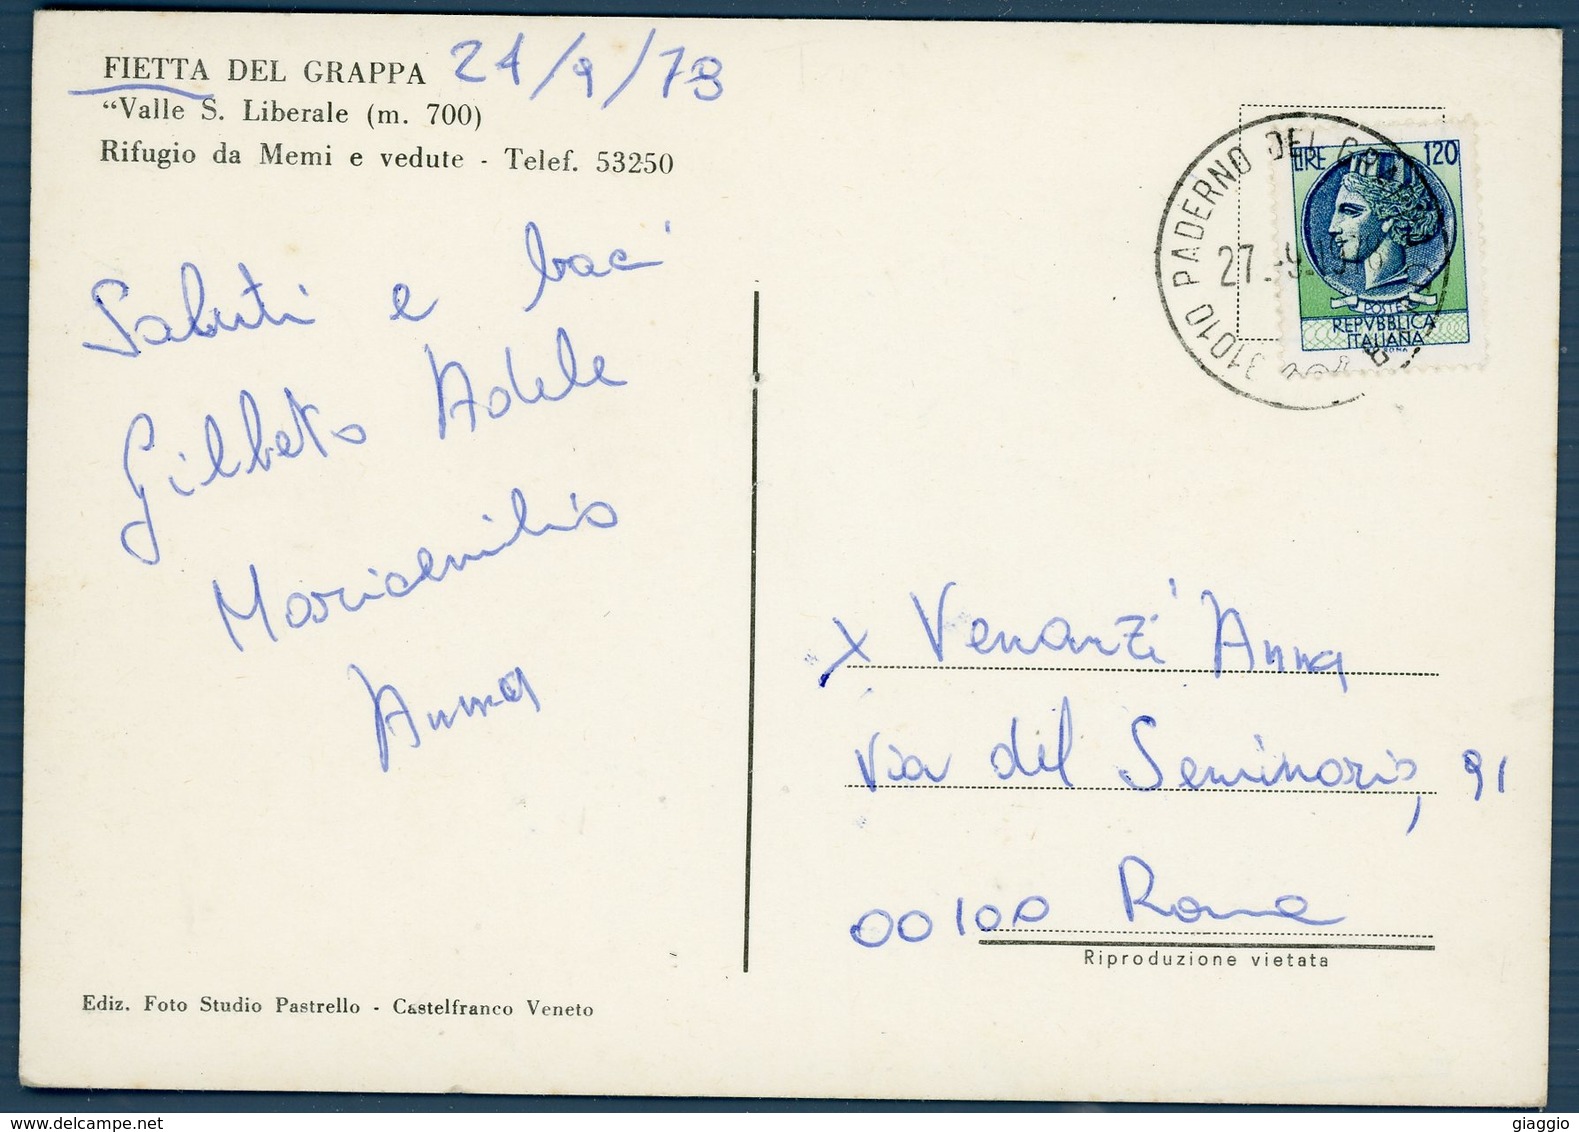 FIETTA DEL GRAPPA 21/9/78
“Valle S. Liberale (m. 700)
Rifugio da Memi e vedute - Telef. 53250
Saluti e baci
Gilberto Adele
Mariaemilia
Anna
Ediz. Foto Studio Pastrello - Castelfranco Veneto
31010 PADERNO DEL
27 -9-19
LIRE 120
POSTE
REPVBBLICA
ITALIANA
ROMA
X Venanzi Anna
Via del Seminario, 91
00100 Roma
Riproduzione vietata
giaggio